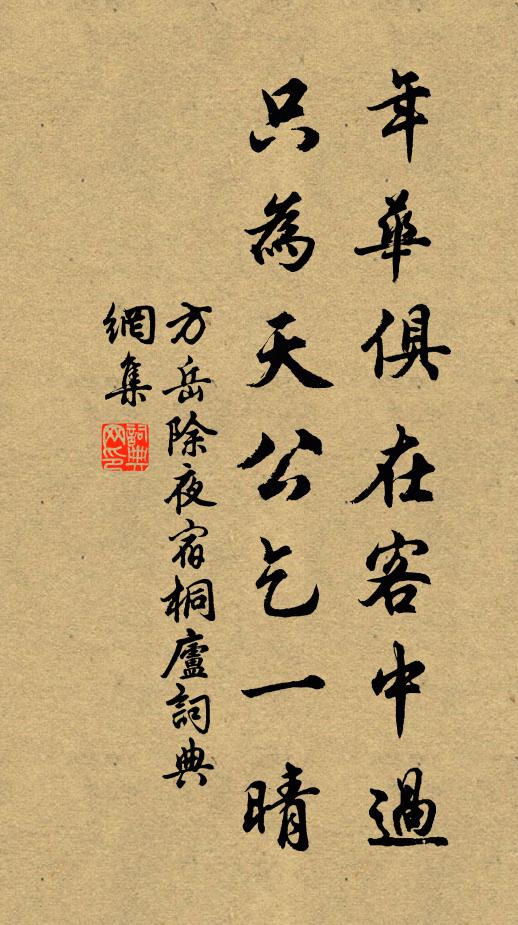 年華俱在客中過
只為天公乞一晴
方岳除夜宿桐廬詞典
網集
詞典
网印